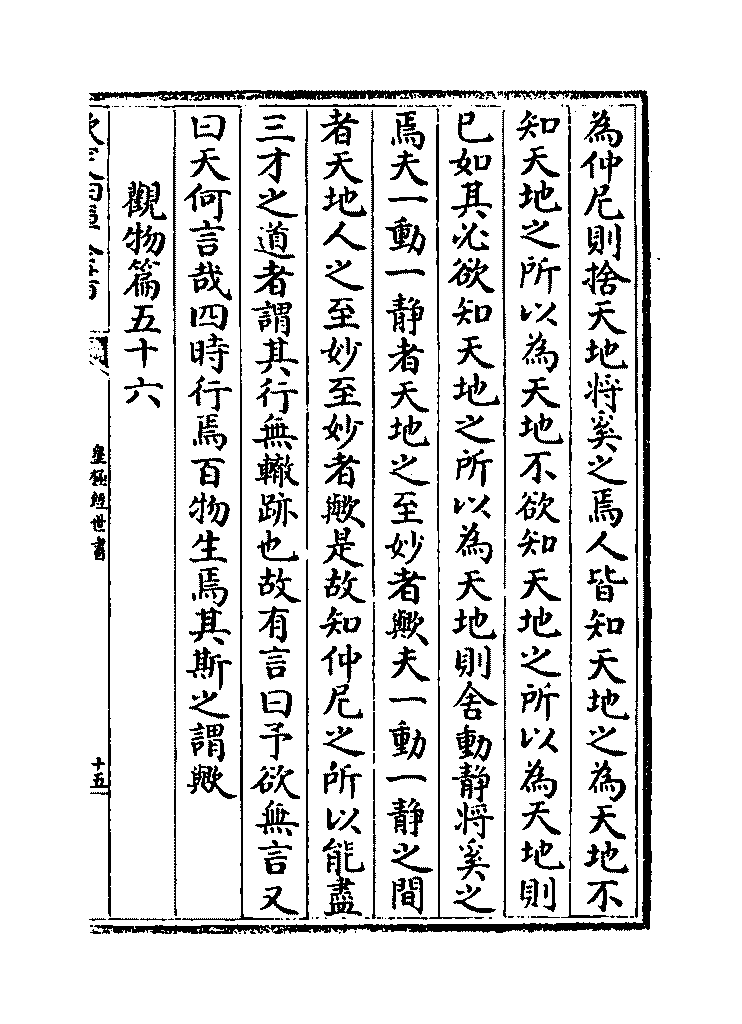 為仲尼則捨天地將奚之焉人皆知天地之為天地不
知天地之所以為天地不欲知天地之所以為天地則
已如其必欲知天地之所以為天地則舍動靜將奚之
焉夫一動一靜者天地之至妙者歟夫一動一靜之間
者天地人之至妙至妙者歟是故知仲尼之所以能盡
三才之道者謂其行無轍跡也故有言曰予欲無言又
曰天何言哉四時行焉百物生焉其斯之謂歟
觀物篇五十六
皇極經世書
十五